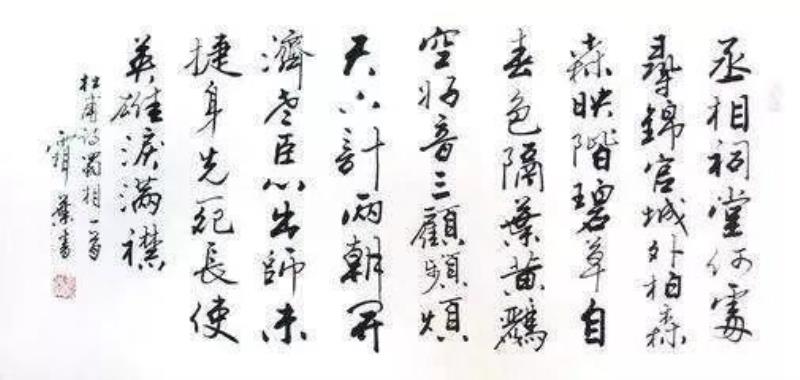 丞相祠堂何處
尋錦官城外柏森
森映階碧草自
春色隔葉黃鸝
空好音三顧頻煩
天下計兩朝開
濟老臣心出師未
捷身先死長使
英雄淚滿襟
杜甫詩蜀相一首
葉書